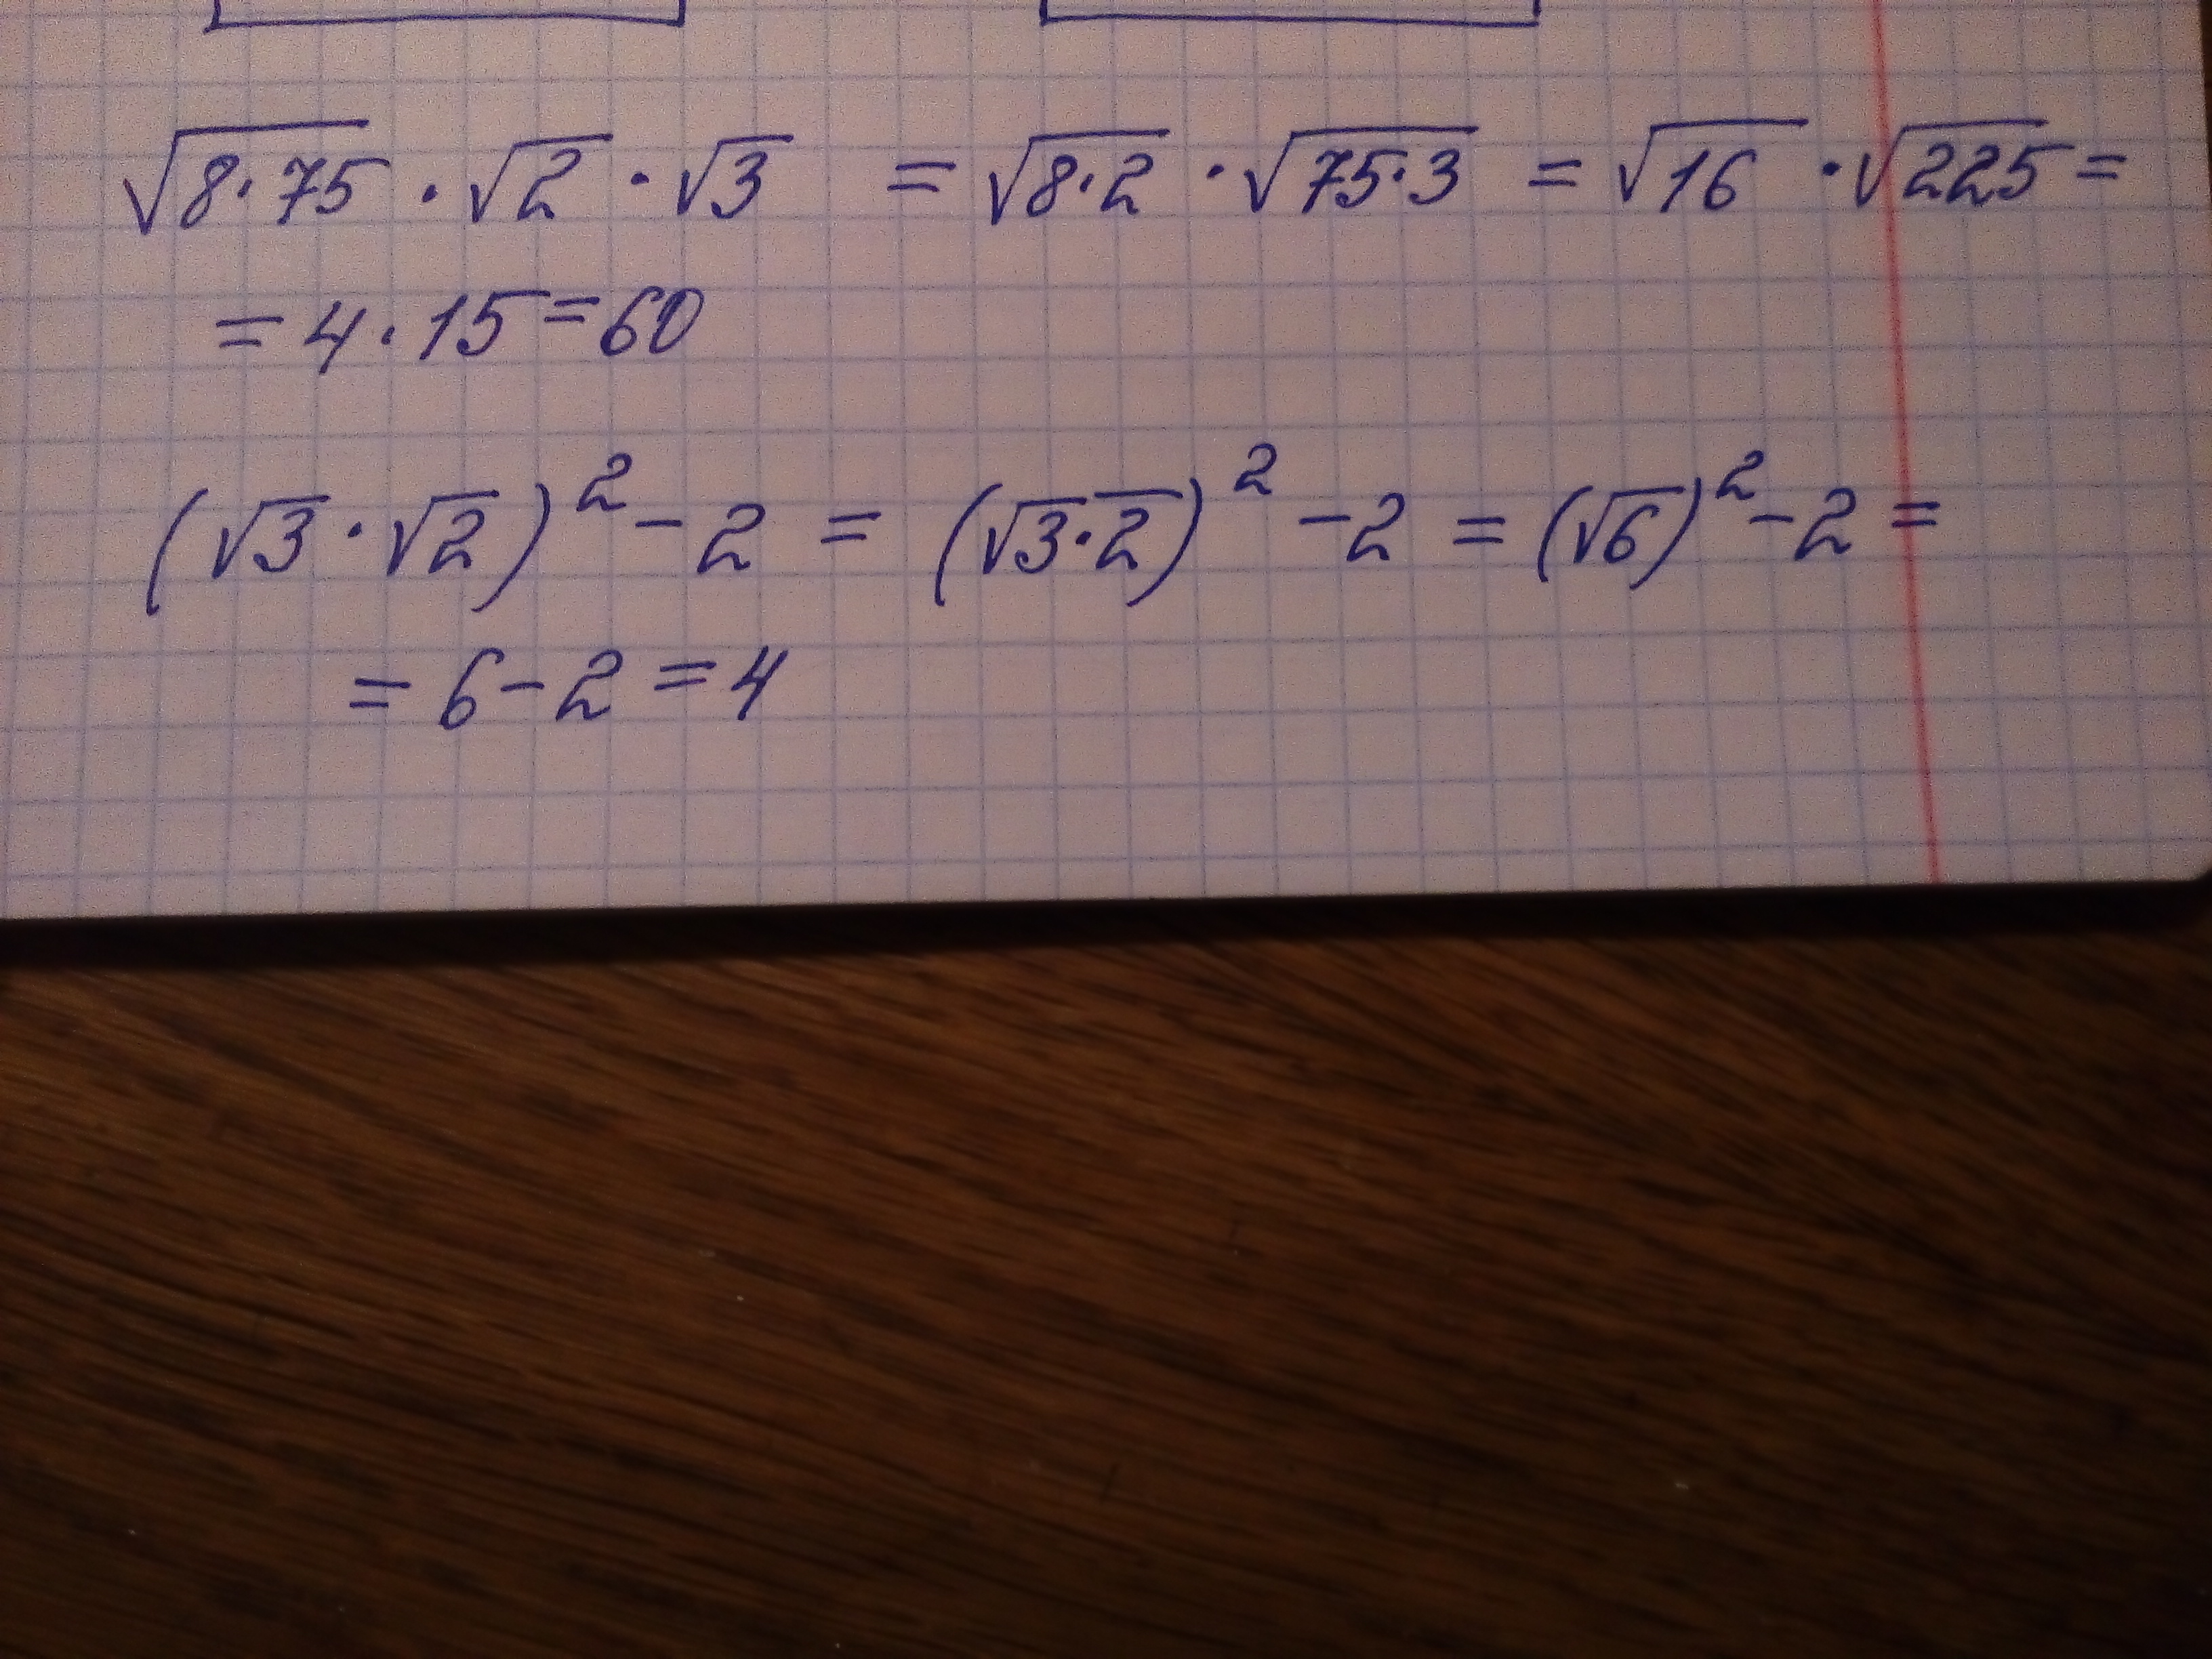 √8·75 · √2 · √3 = √8·2 · √75·3 = √16 · √225 =
= 4·15 = 60
(√3 · √2)² - 2 = (√3·2)² - 2 = (√6)² - 2 =
= 6 - 2 = 4